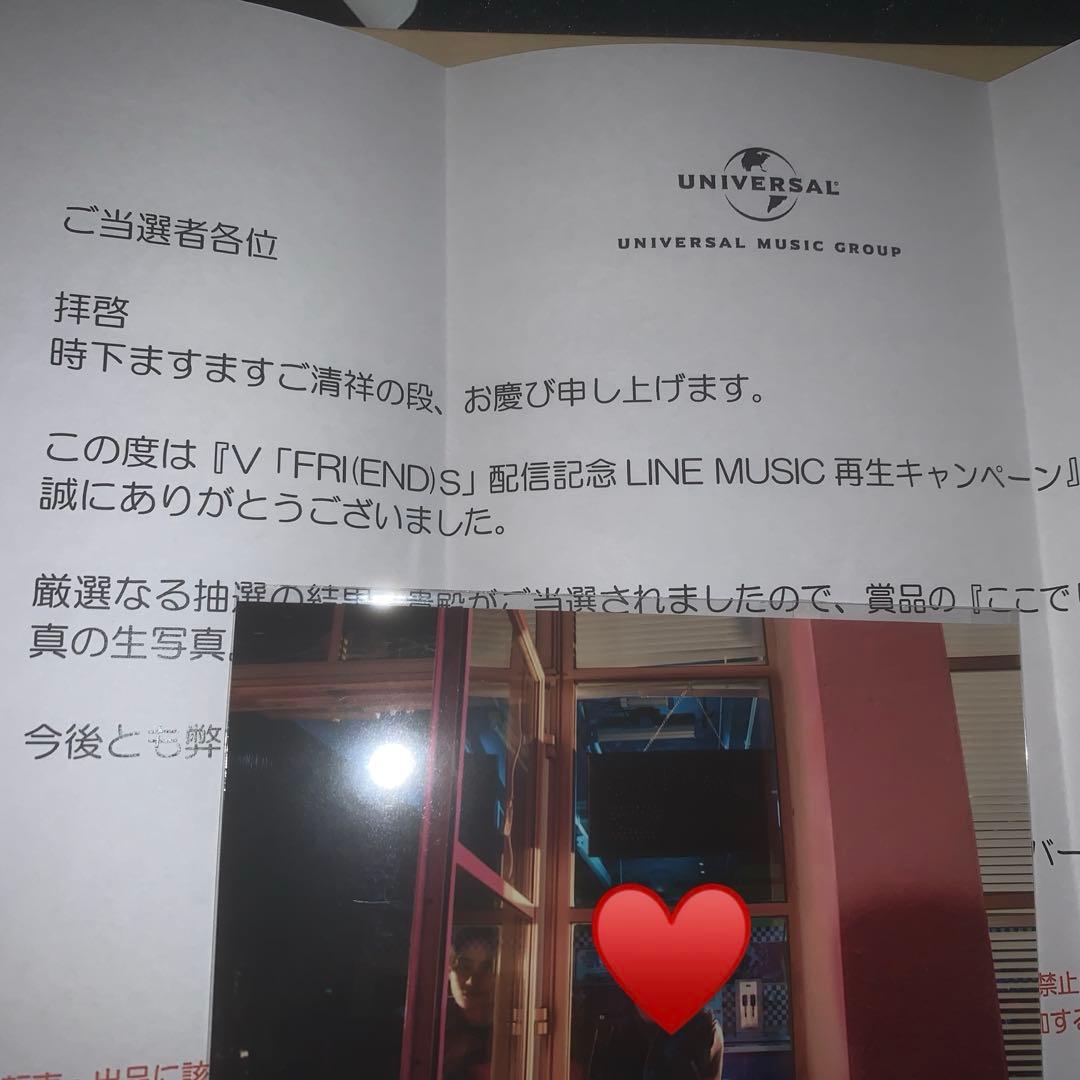 UNIVERSAL
UNIVERSAL MUSIC GROUP
ご当選者各位
拝啓
時下ますますご清祥の段、お慶び申し上げます。
この度は『V「FRI(END)S」配信記念 LINE MUSIC 再生キャンペーン』
誠にありがとうございました。
厳選なる抽選の結果、貴殿がご当選されましたので、賞品の『ここで
真の生写真
今後とも弊
バー
禁止
加する
転売・出品に該